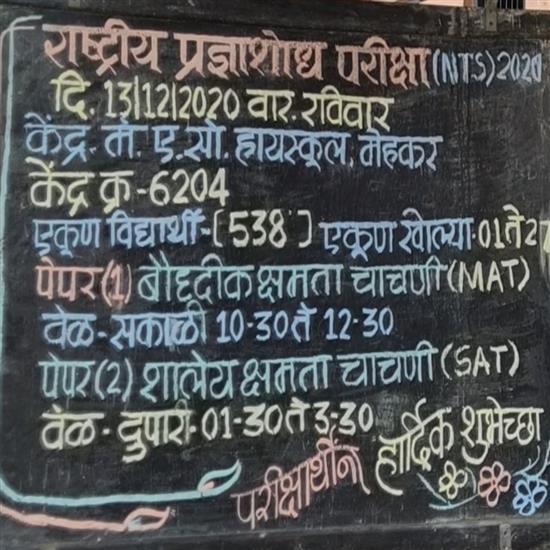 राष्ट्रीय प्रज्ञाशोध परीक्षा (NTS) 2020
दि. 13/12/2020 वार. रविवार
केंद्र. मे. ए. सो. हायस्कूल, मेहकर
केंद्र क्र - 6204
एकुण विद्यार्थी - [538] एकुण खोल्या 01 ते 27
पेपर (1) बौद्दीक क्षमता चाचणी (MAT)
वेळ - सकाळी 10-30 ते 12-30
पेपर (2) शालेय क्षमता चाचणी (SAT)
वेळ - दुपारी 01-30 ते 3-30
परीक्षार्थींना हार्दिक शुभेच्छा